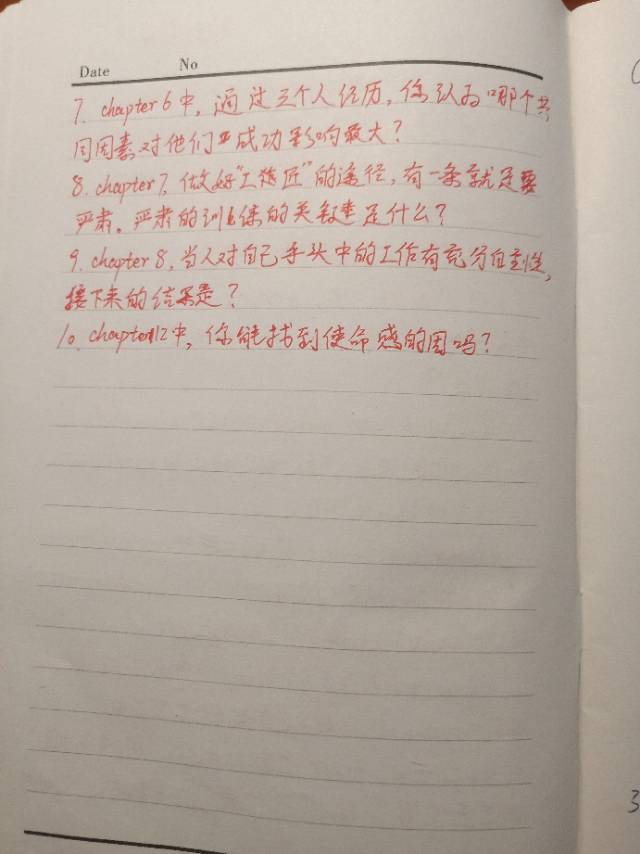 Date No
7. chapter 6 中, 通过三个人经历, 你认为哪个共
同因素对他们业成功影响最大?
8. chapter 7, 做好"工匠"的途径, 有一条就是要
严肃。严肃的训练的关键是什么?
9. chapter 8, 当人对自己手头中的工作有充分自主性,
接下来的结果是?
10. chapter 12 中, 你能找到使命感的因吗?
3